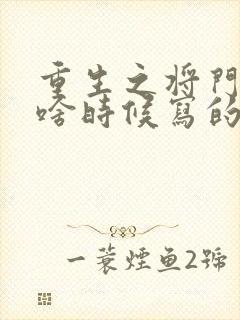 重生之将門
啥時候寫的
一蓑煙鱼2號